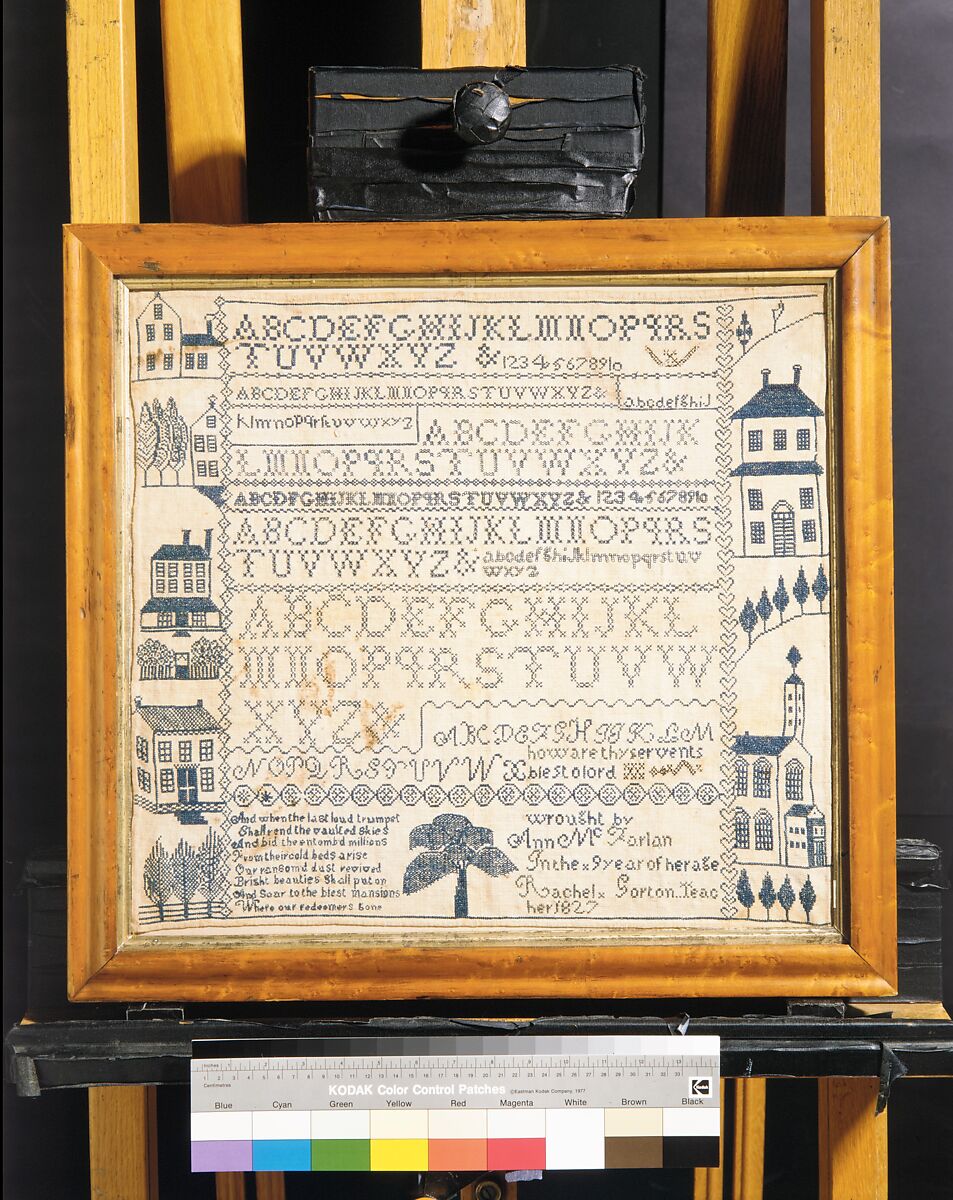 ABCDEFGHIJKLMNOPQRS
TUVWXYZ & 12345678910
ABCDEFGHIJKLMNOPQRSTUVWXYZ&
abcdefghiJ
klmnopqrstuvwxyz
ABCDEFGHIJK
LMNOPQRSTUVWXYZ&
ABCDEFGHIJKLMNOPQRSTUVWXYZ& 12345678910
ABCDEFGHIJKLMNOPQRS
TUVWXYZ& abcdefghiJklmnopqrstuv
wxyz
ABCDEFGHIJKL
MNOPQRSTUVW
XYZ&
ABCDEFGHIJKLM
NOPQRSTUVWX
how are thy servents
blest o lord
And when the last loud trumpet
Shall rend the vaulted skies
And bid the entombd millions
From their cold beds arise
Our ransomd dust revived
Bright beauties Shall put on
And Soar to the blest mansions
Where our redeemers gone
wrought by
Ann Mc Farlan
In the x 9 year of her age
Rachel x Gorton. Teac
her 1827
Inches 1 2 3 4 5 6 7 8 9 10 11 12 13
Centimetres
KODAK Color Control Patches ©Eastman Kodak Company, 1977
Kodak
Blue Cyan Green Yellow Red Magenta White Brown Black